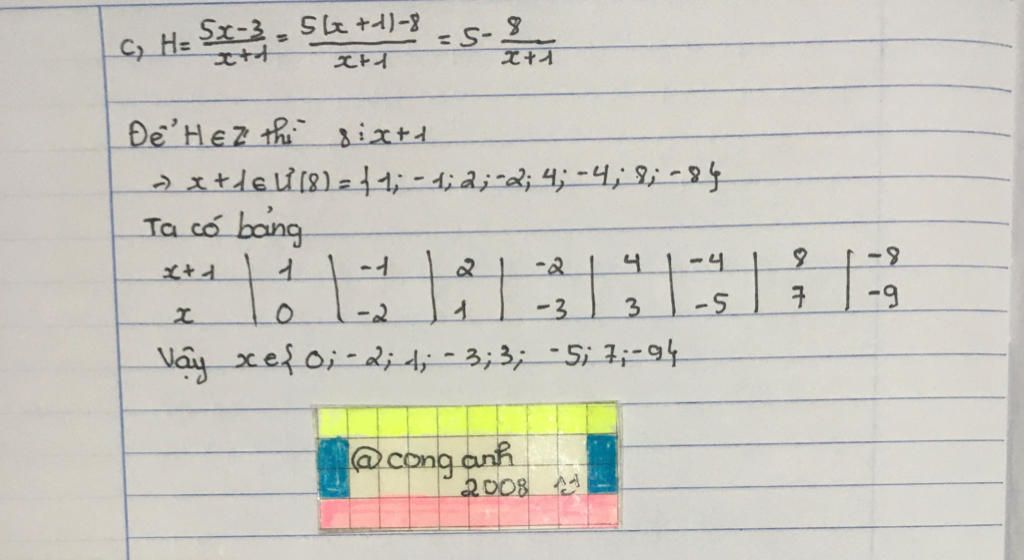 c, H = \frac{5x-3}{x+1} = \frac{5(x+1)-8}{x+1} = 5 - \frac{8}{x+1}
Để H ∈ Z thì 8 ⋮ x+1
→ x+1 ∈ Ư(8) = {1; -1; 2; -2; 4; -4; 8; -8}
Ta có bảng
x+1 | 1 | -1 | 2 | -2 | 4 | -4 | 8 | -8
x | 0 | -2 | 1 | -3 | 3 | -5 | 7 | -9
Vậy x ∈ { 0; -2; 1; -3; 3; -5; 7; -9}
@cong anh
2008